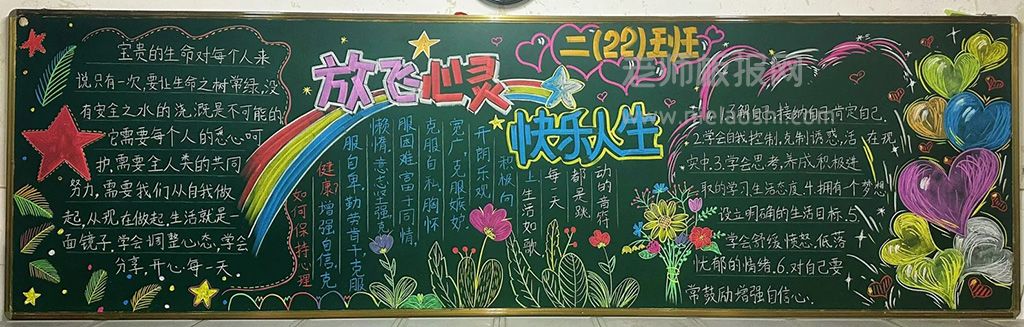 放飞心灵
快乐人生
二(22)班班
老师版报网
宝贵的生命对每个人来
说只有一次,要让生命之树常绿,没
有安全之水的浇,溉是不可能的
它需要每个人的悉心呵
护,需要全人类的共同
努力,需要我们从自我做
起,从现在做起,生活就是一
面镜子,学会调整心态,学会
分享,开心每一天.
如何保持心理
健康?
增强自信,克
服自卑,勤劳肯干,克服
懒惰,意志坚强,克
服困难,富于同情,
克服自私,胸怀
宽广,克服嫉妒,
开朗乐观
积极向
上
生活如歌
每一天
都是跳
动的音符
了解自己接纳自己肯定自己,
2.学会自我控制,克制诱惑,活在现
实中.3.学会思考,养成积极进
取的学习生活态度.4.拥有个梦想
设立明确的生活目标.5.
学会舒缓愤怒,低落
忧郁的情绪.6.对自己要
常鼓励增强自信心.